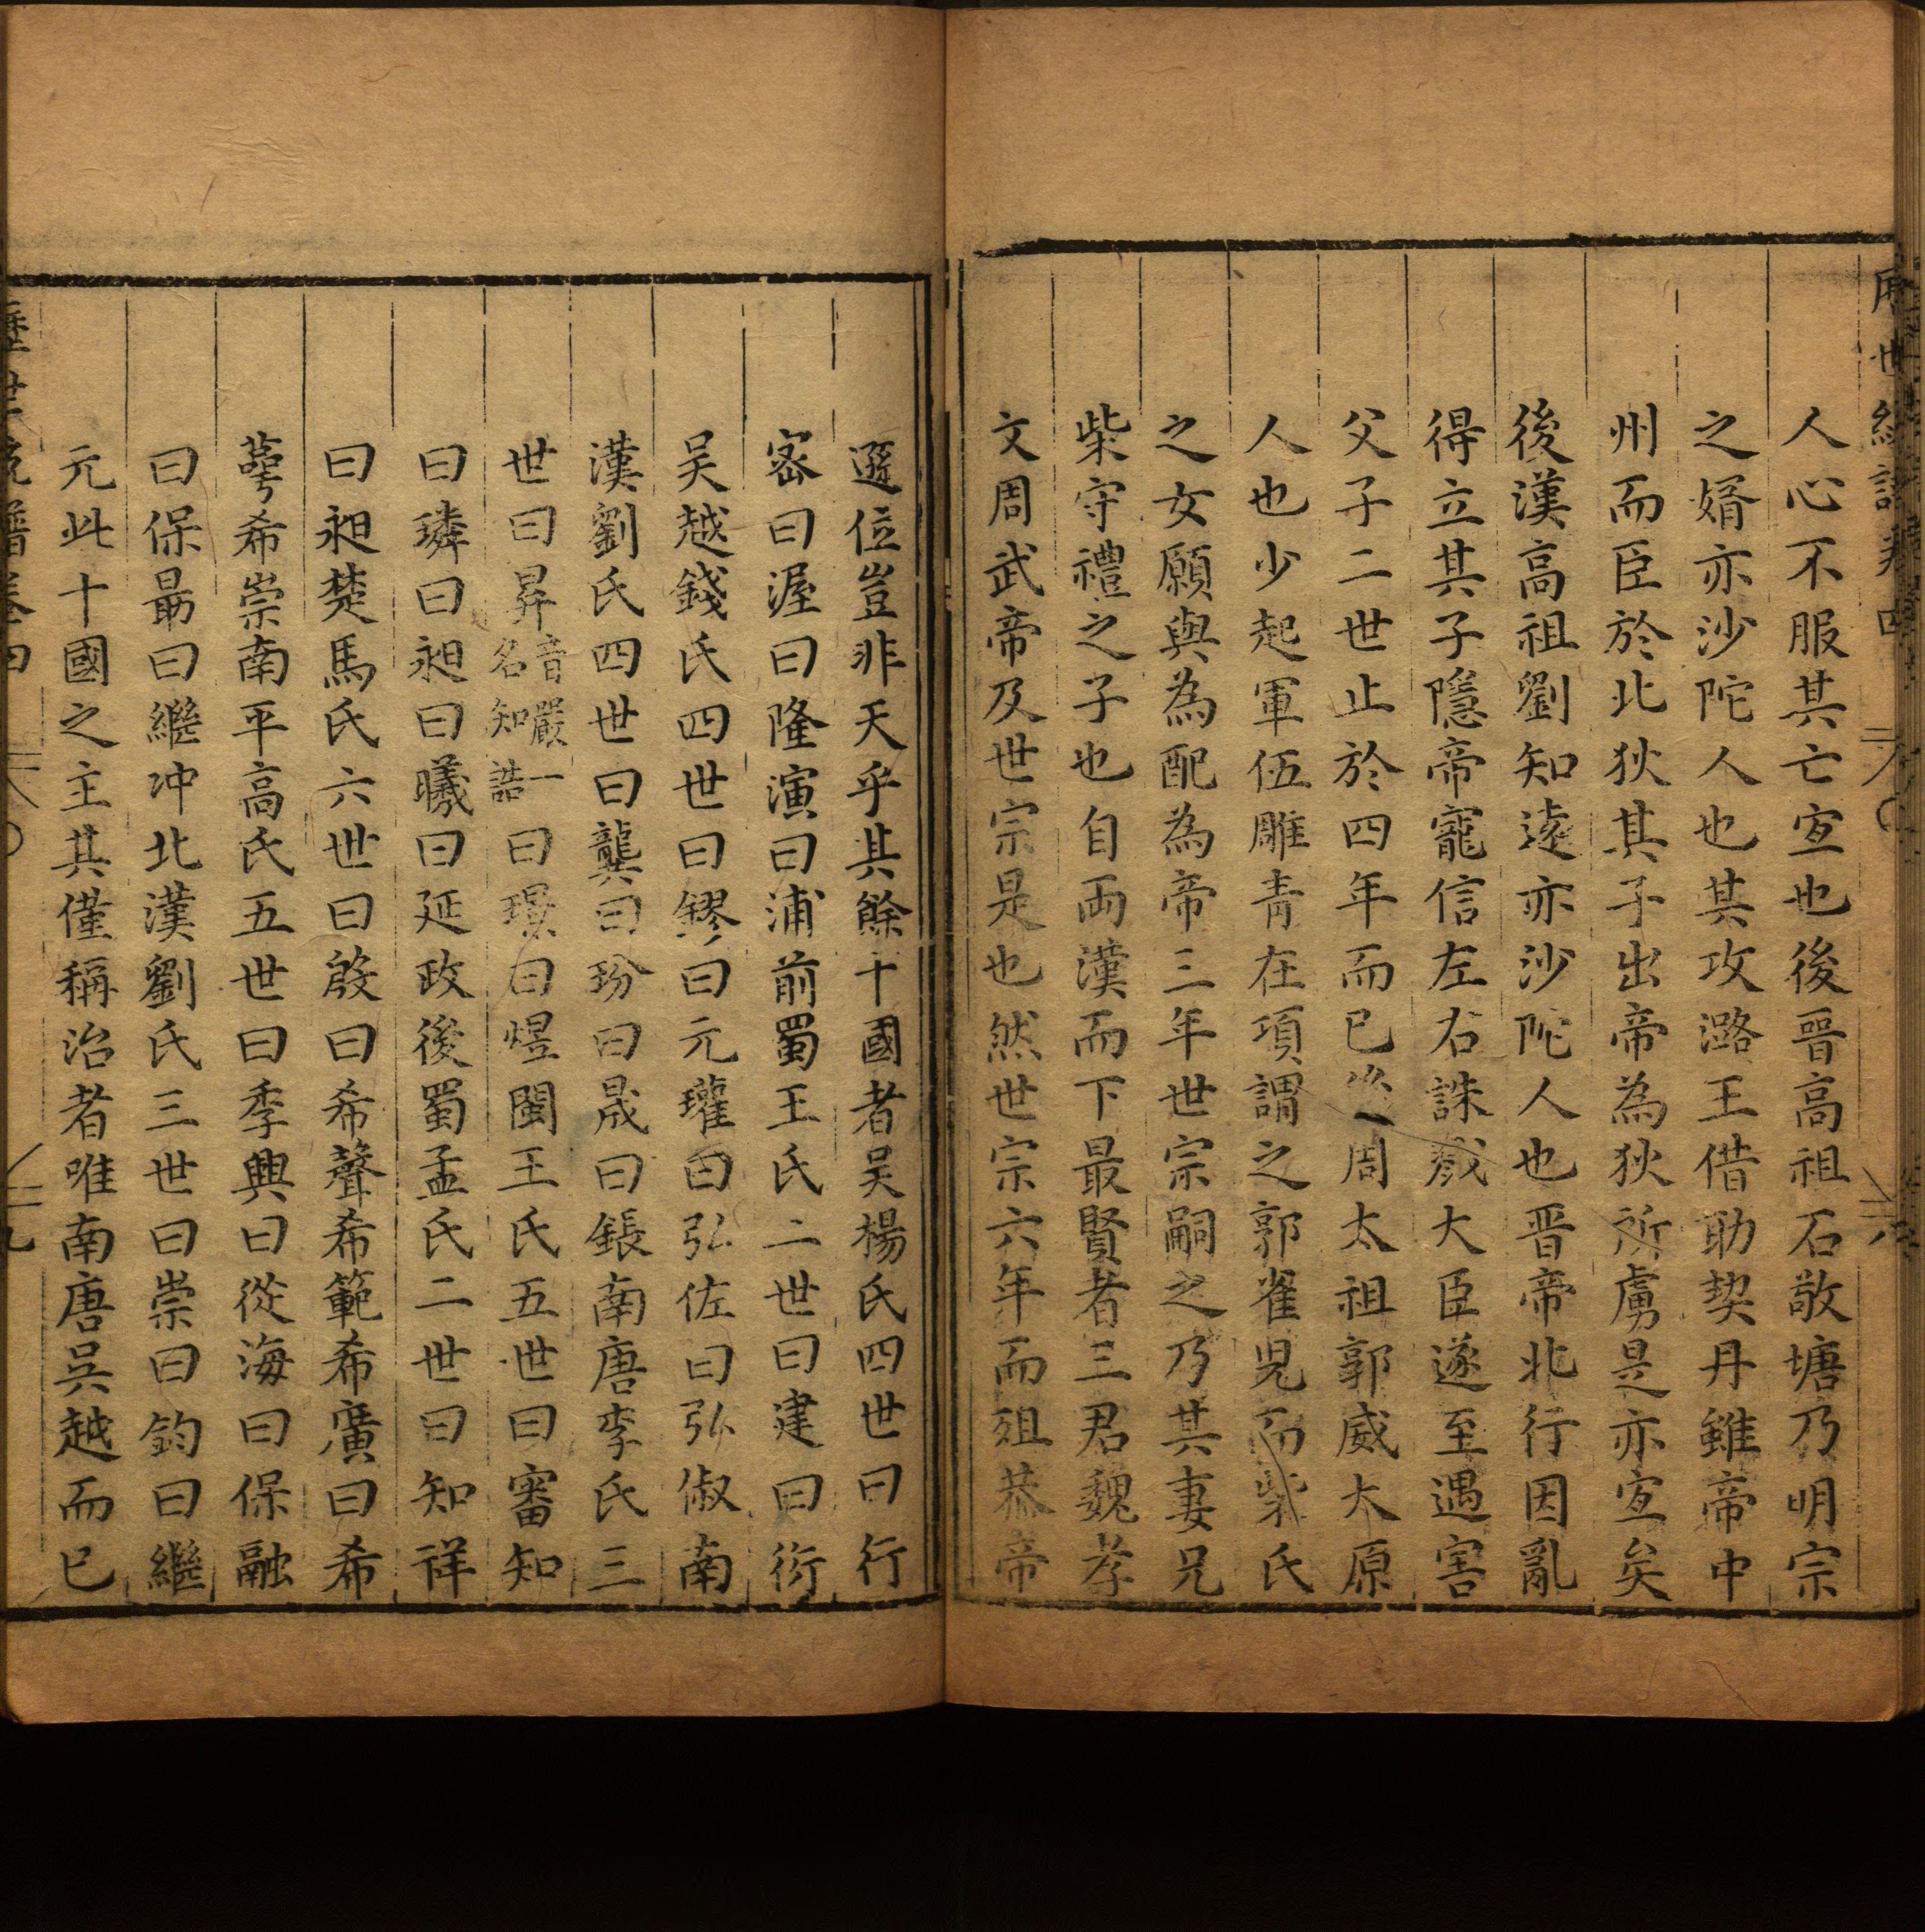 人心不服其亡宜也後晉高祖石敬塘乃明宗
之婿亦沙陀人也其攻潞王借助契丹雖帝中
州而臣於北狄其子出帝為狄所虜是亦宜矣
後漢高祖劉知遠亦沙陀人也晋帝北行因亂
得立其子隱帝寵信左右誅戮大臣遂至遇害
父子二世止於四年而已後周太祖郭威太原
人也少起軍伍雕青在項謂之郭雀児而柴氏
之女願與為配為帝三年世宗嗣之乃其妻兄
柴守禮之子也自兩漢而下最賢者三君魏孝
文周武帝及世宗是也然世宗六年而殂恭帝
遜位豈非天乎其餘十國者吴楊氏四世曰行
宻曰渥曰隆演曰浦前蜀王氏二世曰建曰衍
吴越錢氏四世曰鏐曰元瓘曰弘佐曰弘俶南
漢劉氏四世曰龑曰玢曰晟曰鋹南唐李氏三
世曰昪音嚴一名知誥曰璟曰煜閩王氏五世曰審知
曰璘曰昶曰曦曰延政後蜀孟氏二世曰知祥
曰昶楚馬氏六世曰殷曰希聲希範希廣曰希
蕚希崇南平高氏五世曰季興曰從海曰保融
曰保最曰繼冲北漢劉氏三世曰崇曰鈞曰繼
元此十國之主其僅稱治者唯南唐吳越而已